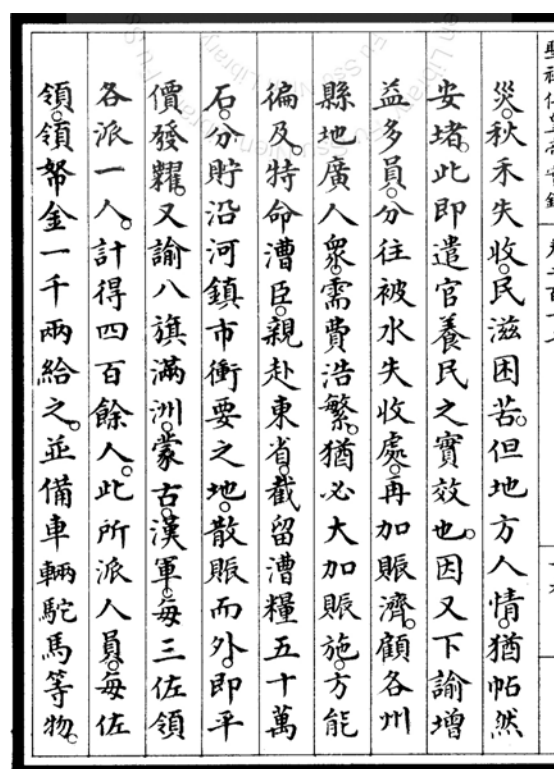 災。秋禾失收。民滋困苦。但地方人情。猶帖然
安堵。此即遣官養民之實效也。因又下諭增
益多員。分往被水失收處。再加賑濟。顧各州
縣地廣人衆。需費浩繁。猶必大加賑施。方能
徧及。特命漕臣。親赴東省。截留漕糧五十萬
石。分貯沿河鎮市衝要之地。散賑而外。即平
價發糶。又諭八旗滿洲。蒙古。漢軍。每三佐領
各派一人。計得四百餘人。此所派人員。每佐
領。領帑金一千兩給之。並備車輛駝馬等物。